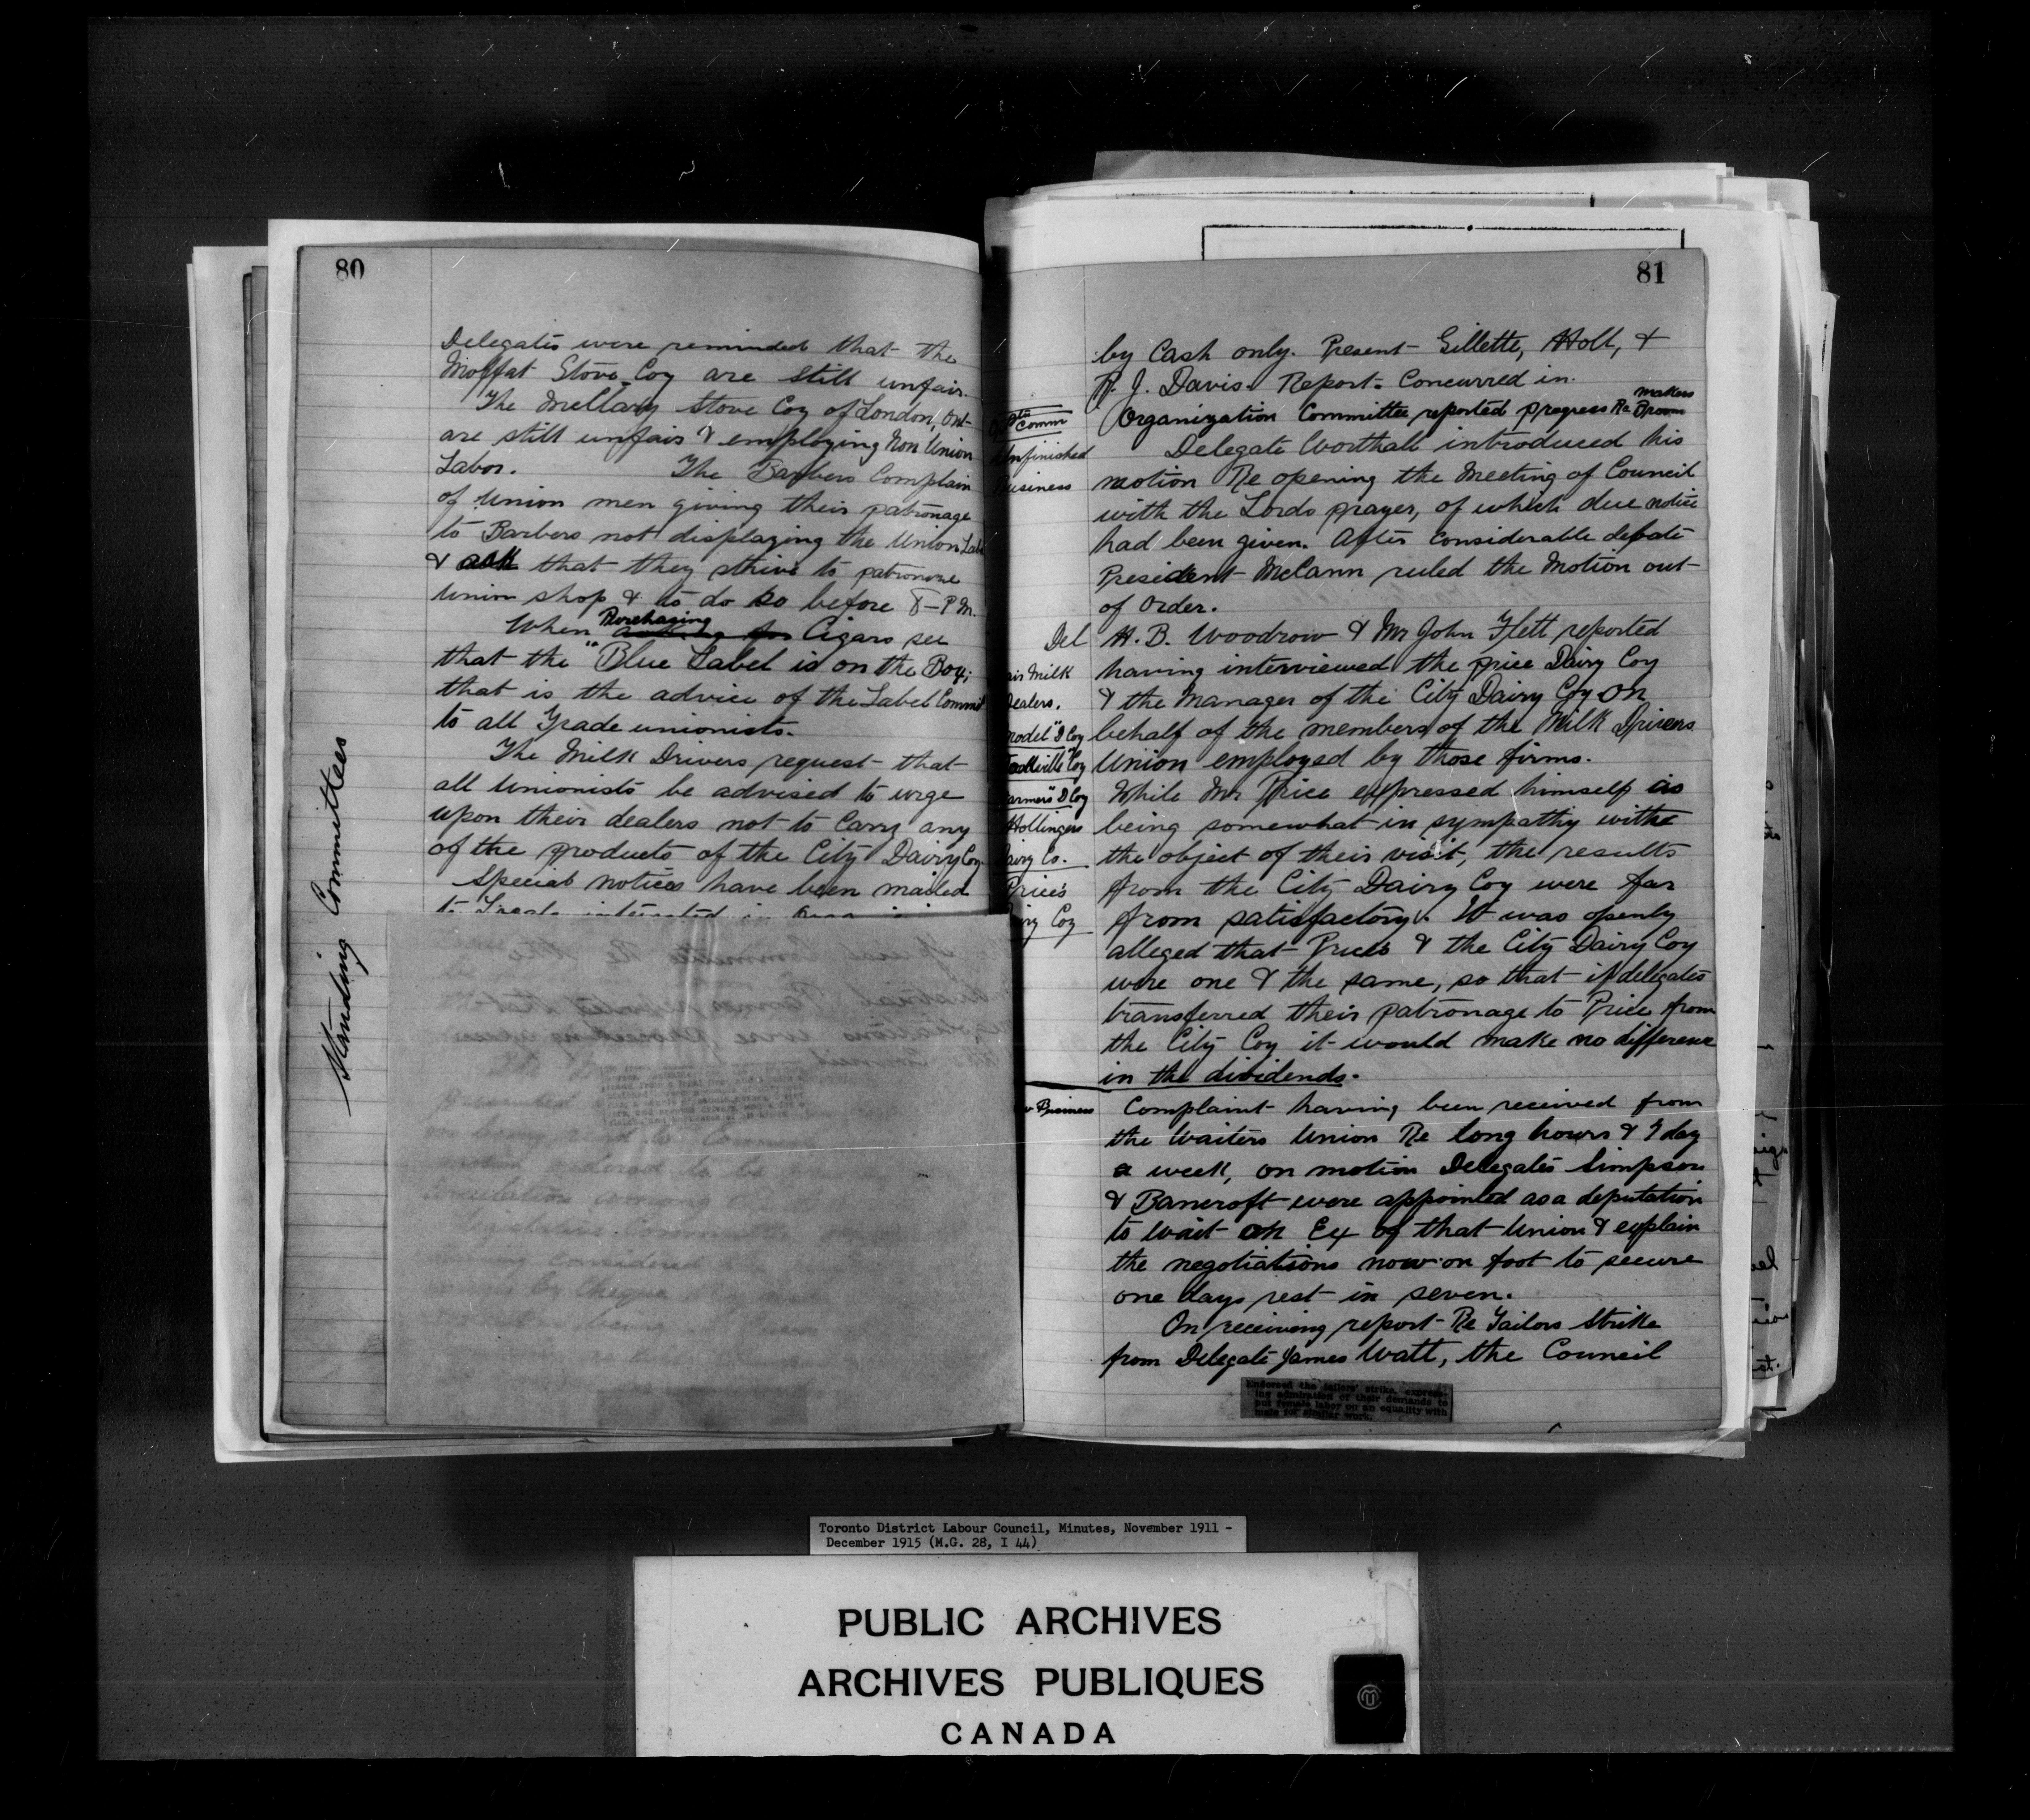 80
Standing Committees
Delegates were reminded that the
Moffat Stove Coy are still unfair.
The McClary Stove Coy of London, Ont
are still unfair & employing Non Union
Labor. The Barbers Complain
of Union men giving their patronage
to Barbers not displaying the Union Labe
& ask that they strive to patronize
Union shop & to do so before 8-P.M.
When Purchasing Cigars see
that the "Blue Label is on the Box;
that is the advice of the Label Commit
to all Trade unionists.
The Milk Drivers request that
all Unionists be advised to urge
upon their dealers not to Carry any
of the products of the City Dairy Coy
Special notices have been mailed
81
by Cash only. Present Gillette, Holt, &
R. J. Davis. Report Concurred in.
Comm
Organization Committee reported progress Re Broom makers
Unfinished
Business
Delegate Worthall introduced his
motion Re opening the Meeting of Council
with the Lords prayer, of which due notice
had been given. After Considerable debate
President McCann ruled the Motion out
of Order.
Del H. B. Woodrow & Mr John Flett reported
having interviewed the price Dairy Coy
& the Manager of the City Dairy Coy on
behalf of the members of the Milk Drivers
Union employed by those firms.
While Mr Price expressed himself as
being somewhat in sympathy withe
the object of their visit, the results
from the City Dairy Coy were far
from satisfactory. It was openly
alleged that Prices & the City Dairy Coy
were one & the same, so that if delegates
transferred their patronage to Price from
the City Coy it would make no difference
in the dividends.
air Milk
Dealers.
model" D Coy
Coy
armers" D Coy
Hollingers
airy Co.
Price's
iry Coy
w Business
Complaint having been received from
the Waiters Union Re long hours & 7 day
a week, on motion Delegates Simpson
& Bancroft were appointed as a deputation
to Wait on Ex of that Union & explain
the negotiations now on foot to secure
one days rest in seven.
On receiving report Re Tailors Strike
from Delegate James Watt, the Council
Endorsed the tailors' strike, express-
ing admiration of their demands to
put female labor on an equality with
male for similar work.
Toronto District Labour Council, Minutes, November 1911 -
December 1915 (M.G. 28, I 44)
PUBLIC ARCHIVES
ARCHIVES PUBLIQUES
CANADA